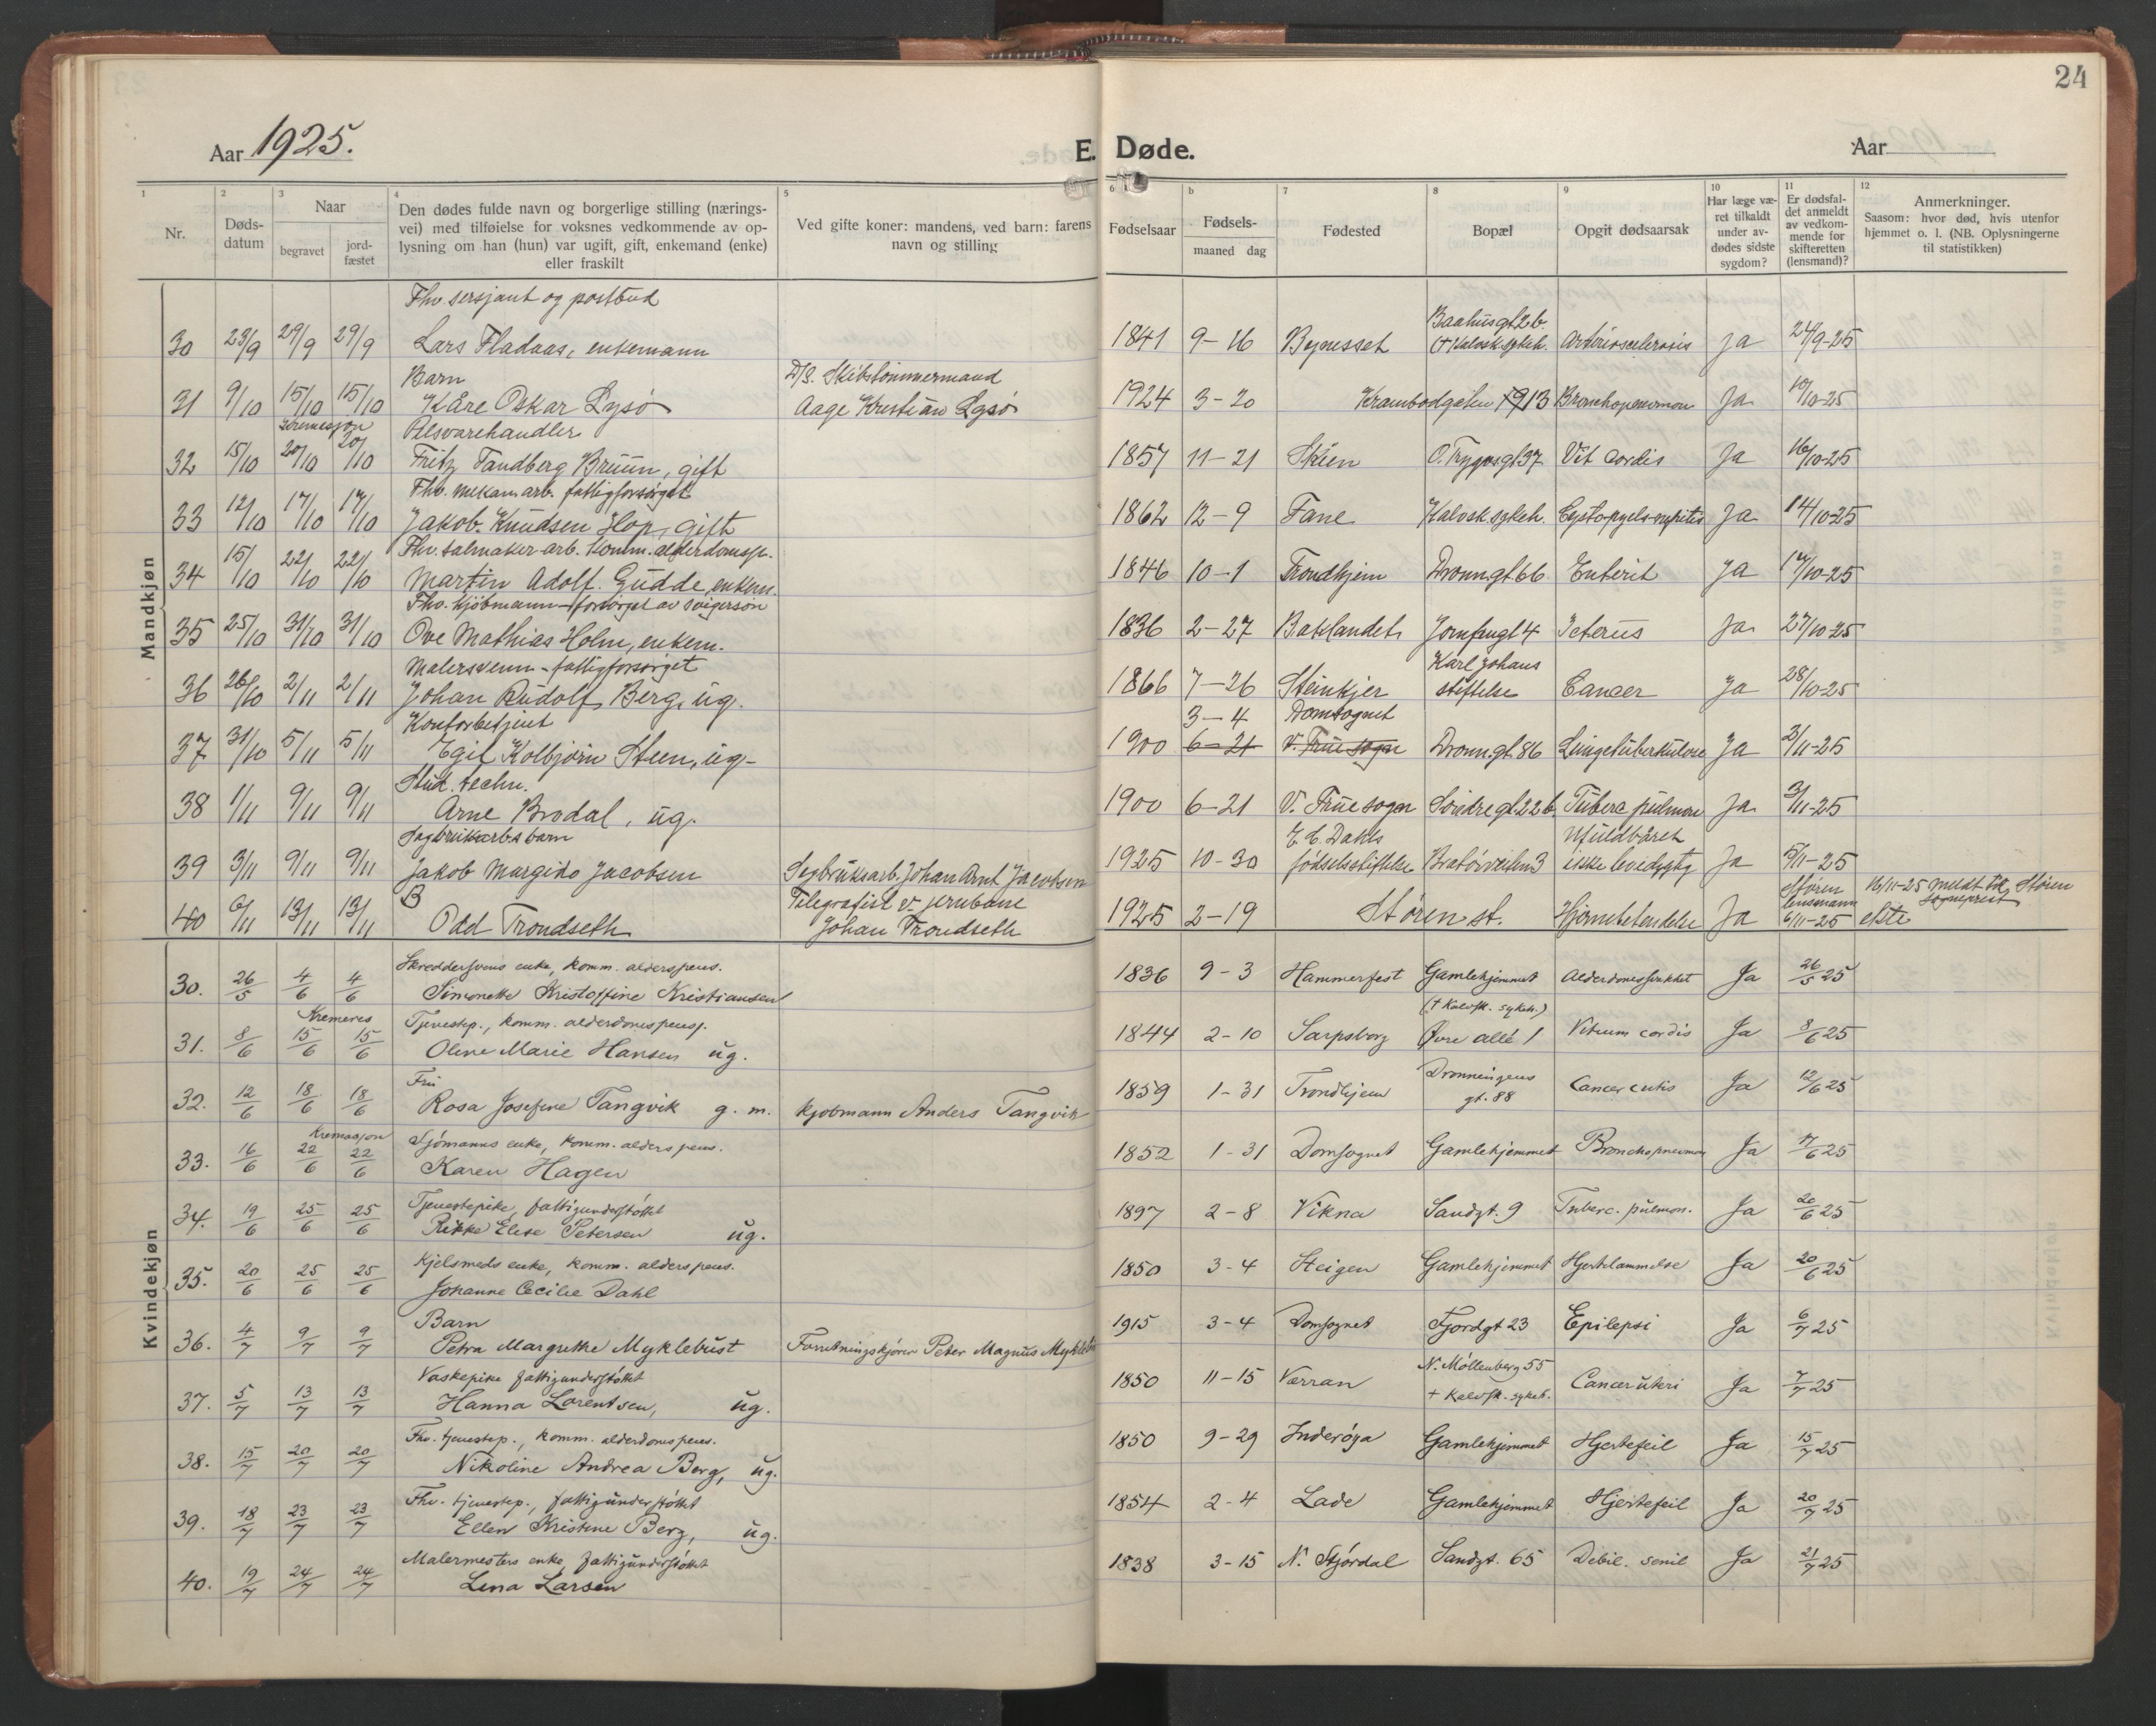 24
Aar 1925.
E. Døde.
Aar
1
2
3
4
5
6
b
7
8
9
10
11
12
Nr.
Døds-
datum
Naar
begravet
jord-
fæstet
Den dødes fulde navn og borgerlige stilling (nærings-
vei) med tilføielse for voksnes vedkommende av op-
lysning om han (hun) var ugift, gift, enkemand (enke)
eller fraskilt
Ved gifte koner: mandens, ved barn: farens
navn og stilling
Fødselsaar
Fødsels-
maaned dag
Fødested
Bopæl
Opgit dødsaarsak
Har læge væ-
ret tilkaldt
under av-
dødes sidste
sygdom?
Er dødsfal-
det anmeldt
av vedkom-
mende for
skifteretten
(lensmand)?
Anmerkninger.
Saasom: hvor død, hvis utenfor
hjemmet o. l. (NB. Oplysningerne
til statistikken)
Mandkjøn
Fhv. sersjant og postbud
Baahusgt 2 b.
30 23/9 29/9 29/9 Lars Fladaas, enkemann 1841 9-16 Bynesset († Kalvsk. sykeh. Arteriosclerosis Ja 24/9-25
Barn D/S. Skibstømmermand
31 9/10 15/10 15/10 Kåre Oskar Lysø Aage Kristian Lysø 1924 3-20 Krambodgaten 13 Bronchopneumon Ja 10/10-25
Kremasjon Pelsvarehandler
32 15/10 20/10 20/10 Fritz Tandberg Bruun, gift 1857 11-21 Skien O. Trygvsgt 37 Vit cordis Ja 16/10-25
Fhv. mekan. arb. fattigforsørget
33 12/10 17/10 17/10 Jakob Knudsen Hop, gift 1862 12-9 Fane Kalvsk. sykeh. Cysto-pyelo-nefritis Ja 14/10-25
Fhv. salmaker arb. komm. alderdomsp.
34 15/10 22/10 22/10 Martin Adolf Gudde, enkem. 1846 10-1 Trondhjem Dronn.gt 66 Enterit Ja 17/10-25
Fhv. Kjøbmann - forsørget av svigersøn
35 25/10 31/10 31/10 Ove Mathias Holm, enkem. 1836 2-27 Baklandet Jomfrugt 4 Icterus Ja 27/10-25
Malersvenn - fattigforsørget Karl Johans
36 26/10 2/11 2/11 Johan Rudolf Berg, ug. 1866 7-26 Steinkjer stiftelse Cancer Ja 28/10-25
Kontorbetjent 3-4 Domsognet
37 31/10 5/11 5/11 Egil Kolbjørn Steen, ug- 1900 6-21 V. Frue sogn Dronn.gt. 86 Lungetuberkulose Ja 3/11-25
Stud. techn.
38 1/11 9/11 9/11 Arne Brodal, ug. 1900 6-21 V. Frue sogn Søndregt. 22 b. Tuberc pulmon Ja 3/11-25
Sagbruksarb.s barn E. C. Dahls Ufuldbåret
39 3/11 9/11 9/11 Jakob Margido Jacobsen Sagbruksarb. Johan Arnt Jacobsen 1925 10-30 fødselsstiftelse Bratørveiten 3 ikke levedygtig Ja 5/11-25
B Telegrafist v. jernbane Støren lensmann 16/11-25 meldt til Støren sogneprest
40 6/11 13/11 13/11 Odd Trondseth Johan Trondseth 1925 2-19 Støren st. Hjernebetendelse Ja 6/11-25
Kvindekjøn
Skreddersvens enke, komm. alderspens.
30. 26/5 4/6 4/6 Simonette Kristoffine Kristiansen 1836 9-3 Hammerfest Gamlehjemmet Alderdomssvækket Ja 26/5 25
Kremeres Tjenestep., komm. alderdomspensj. († Kalvsk. sykeh.)
31. 8/6 15/6 15/6 Oline Marie Hansen ug. 1844 2-10 Sarpsborg Øvre allé 1 Vitium cordis Ja 8/6 25
Fru Dronningens
32. 12/6 18/6 18/6 Rosa Josefine Tangvik g. m. kjøbmann Anders Tangvik 1859 1-31 Trondhjem gt. 88 Cancer cutis Ja 12/6 25
Kremasjon Sjømanns enke, komm. alderspens.
33. 16/6 22/6 22/6 Karen Hagen 1852 1-31 Domsognet Gamlehjemmet Bronchopneumon Ja 17/6 25
Tjenestepike, fattigunderstøttet
34. 19/6 25/6 25/6 Rikke Elise Petersen ug. 1897 2-8 Vikna Sandgt. 9 Tuberc. pulmon. Ja 20/6 25
Kjelsmeds enke, komm. alderspens.
35. 20/6 25/6 25/6 Johanne Cecilie Dahl 1850 3-4 Steigen Gamlehjemmet Hjertelammelse Ja 20/6 25
Barn
36. 4/7 9/7 9/7 Petra Margrethe Myklebust Forretningskjører Peter Magnus Myklebust 1915 3-4 Domsognet Fjordgt 23 Epilepsi Ja 6/7 25
Vaskepike fattigunderstøttet N. Møllenberg 55
37. 5/7 13/7 13/7 Hanna Lorentsen, ug. 1850 11-15 Verran † Kalvsk. sykeh. Cancer uteri Ja 7/7 25
Fhv. tjenestep., komm. alderdomspens.
38. 15/7 20/7 20/7 Nikoline Andrea Berg, ug. 1850 9-29 Inderøya Gamlehjemmet Hjertefeil Ja 15/7 25
Fhv. tjenestep., fattigunderstøttet
39. 18/7 23/7 23/7 Ellen Kristine Berg, ug. 1854 2-4 Lade Gamlehjemmet Hjertefeil Ja 20/7 25
Malermesters enke, fattigunderstøttet
40. 19/7 24/7 24/7 Lena Larsen 1838 3-15 N. Stjørdal Sandgt. 65 Debil. senil Ja 21/7 25